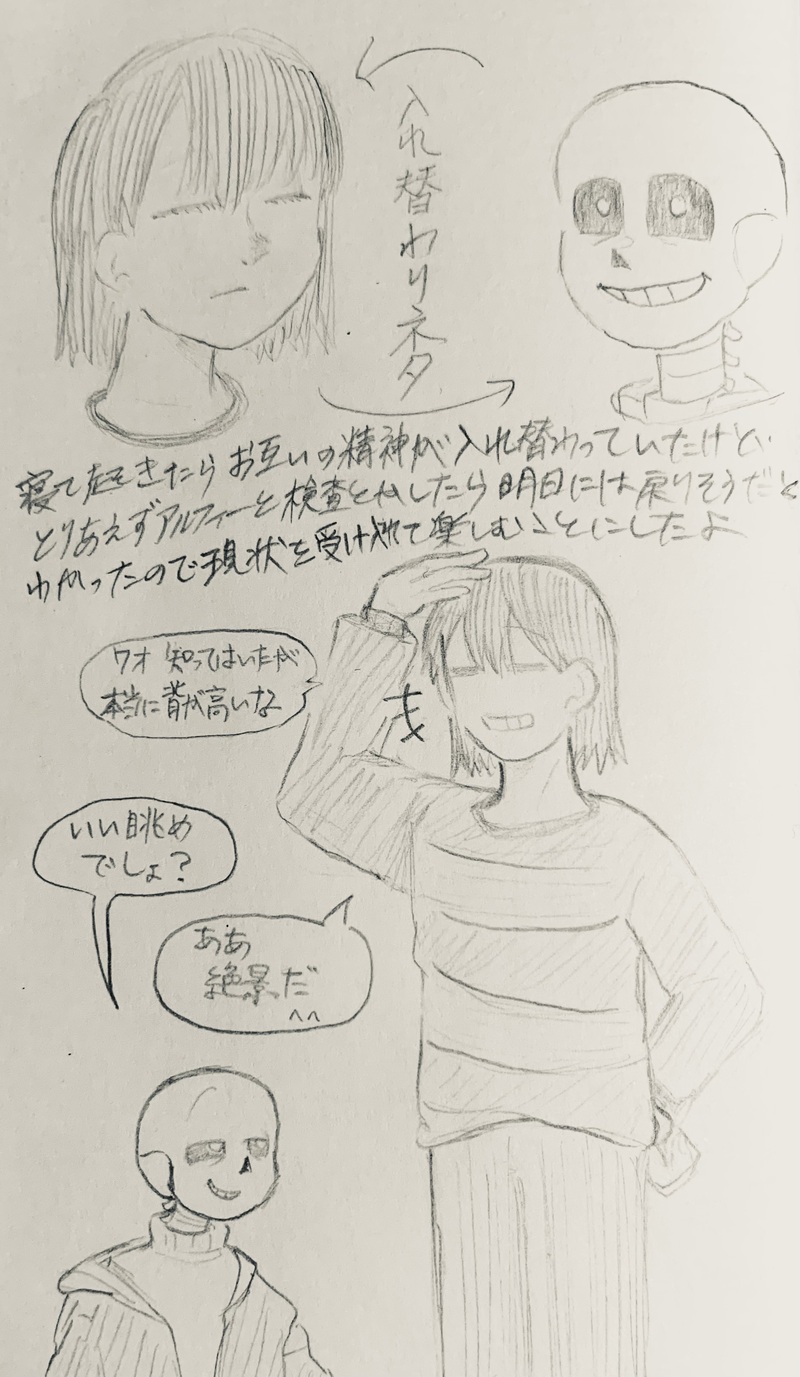 入れ替わりネタ
寝て起きたらお互いの精神が入れ替わっていたけど
とりあえずアルフィーと検査とかしたら明日には戻りそうだと
わかったので現状を受け入れて楽しむことにしたよ
ワオ 知ってはいたが
本当に背が高いな
いい眺め
でしょ?
ああ
絶景だ
^^